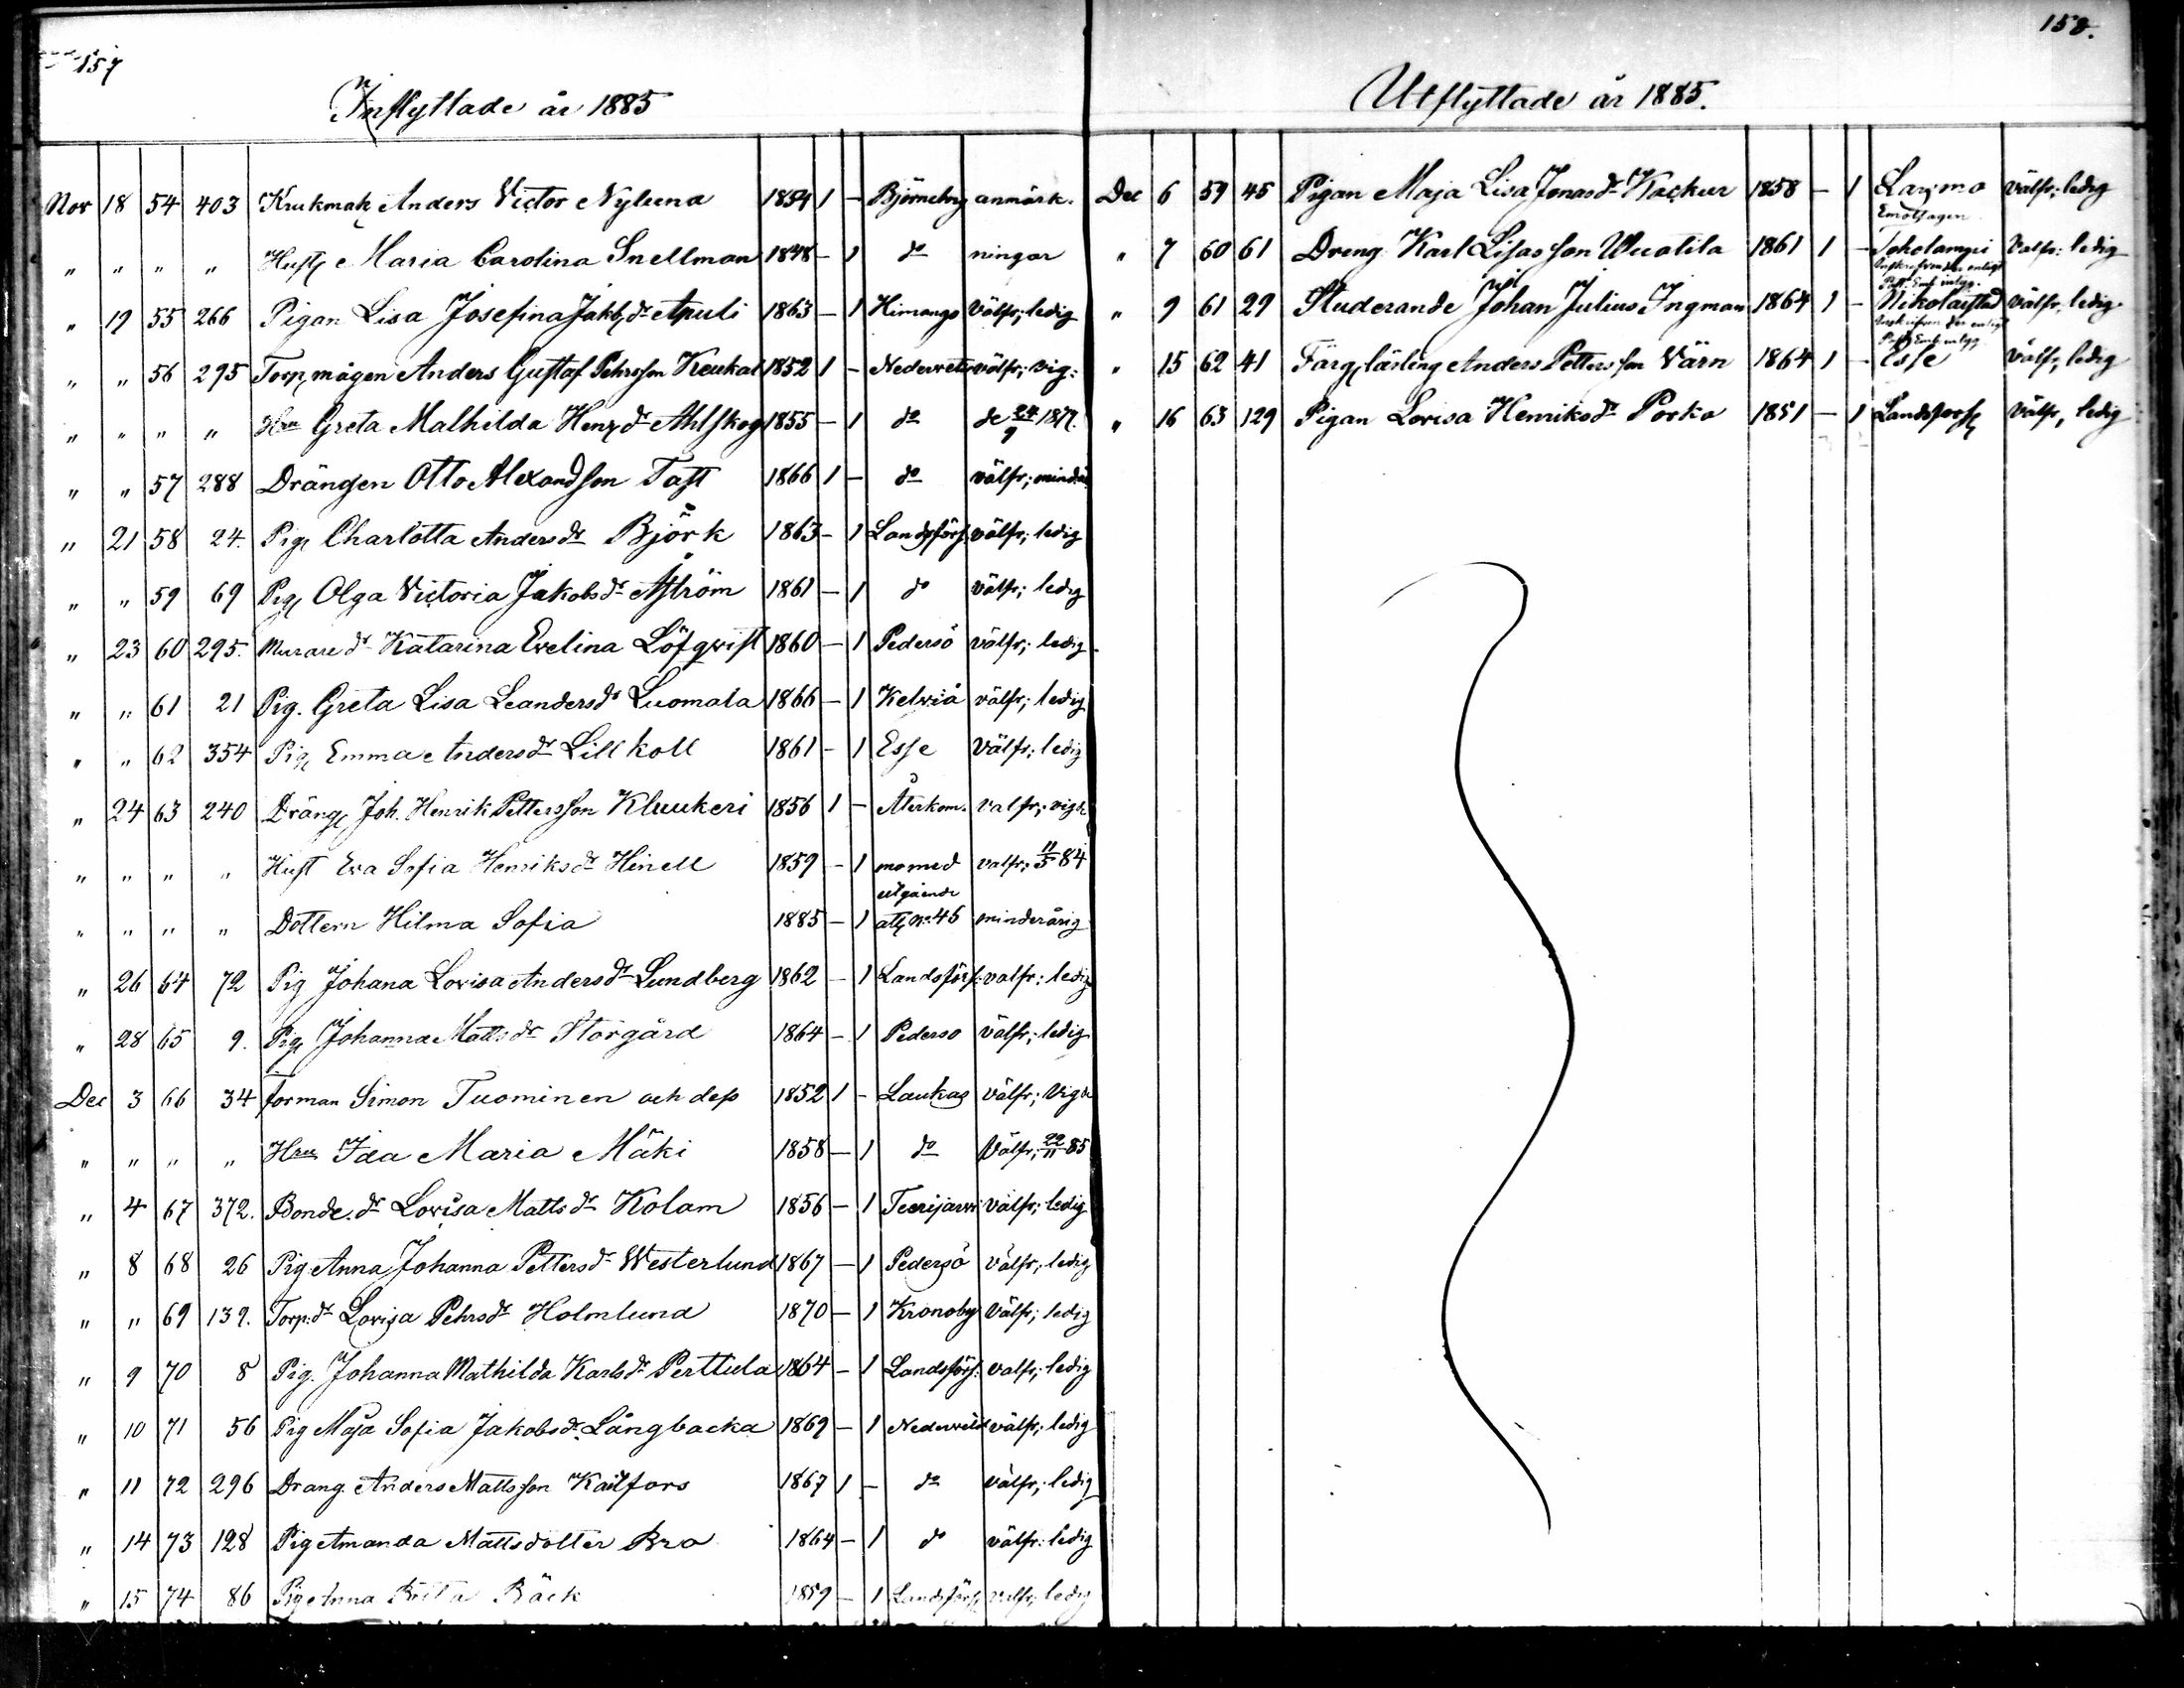 157
Inflyttade år 1885
Nov 18 54 403 Krukmak Anders Victor Nylund 1854 1 - Björneborg anmärk.
" " " " Hust Maria Carolina Snellman 1848 - 1 do ningar
" 19 55 266 Pigan Lisa Josefina Jakb dr Apuli 1863 - 1 Himango välfr; ledig
" " 56 295 Torp mågen Anders Gustaf Pehrsson Keukal 1852 1 - Nederveti välfr; vig:
" " " " Hru Greta Malhilda Henr dr Ahlskog 1855 - 1 do de 24/9 1877.
" " 57 288 Drängen Otto Alexandsson Tast 1866 1 - do välfr; mindå
" 21 58 24. Pig Charlotta Anders dr Björk 1863 - 1 Landsförs välfr; ledig
" " 59 69 Pig Olga Victoria Jakobs dr Åström 1861 - 1 do välfr; ledig
" 23 60 295. Murare dr Katarina Evelina Löfqvist 1860 - 1 Pedersö välfr; ledig
" " 61 21 Pig. Greta Lisa Leanders dr Luomala 1866 - 1 Kelviå välfr; ledig
" " 62 354 Pig Emma Anders dr Lillkoll 1861 - 1 Esse välfr; ledig
" 24 63 240 Dräng Joh. Henrik Pettersson Kluukeri 1856 1 - Återkom. välfr; vigde
" " " " Hust Eva Sofia Henriks dr Hinell 1859 - 1 mo med välfr; 11/5 84
utgående
" " " " Dottern Hilma Sofia 1885 - 1 att No 46 minderårig
" 26 64 72 Pig Johana Lovisa Anders dr Lundberg 1862 - 1 Landsförs: valfr: ledig
" 28 65 9. Pig Johanna Matts dr Storgård 1864 - 1 Pederso välfr; ledig
Dec 3 66 34 forman Simon Tuominen och dess 1852 1 - Laukas välfr; Vigde
" " " " Hru Ida Maria Mäki 1858 - 1 do Välfr; 22/11 85
" 4 67 372. Bonde. dr Lovisa Matts dr Kolam 1856 - 1 Teerijarvi välfr; ledig
" 8 68 26 Pig Anna Johanna Petters dr Westerlund 1867 - 1 Pedersö välfr; ledig
" " 69 139. Torp: dr Lovisa Pehrs dr Holmlund 1870 - 1 Kronoby välfr; ledig
" 9 70 8 Pig. Johanna Mathilda Karls dr Perttula 1864 - 1 Landsförs: valfr; ledig
" 10 71 56 Pig Maja Sofia Jakobs dr Långbacka 1869 - 1 Nedervetil välfr; ledig
" 11 72 296 Drang. Anders Mattsson Kailfors 1867 1 - do välfr; ledig
" 14 73 128 Pig Amanda Mattsdotter Bro 1864 - 1 do välfr: ledig
" 15 74 86 Pig Anna Brita Bäck 1859 - 1 Landsförs välfr; ledig
158.
Utflyttade år 1885.
Dec 6 59 45 Pigan Maja Lisa Jonas dr Kackur 1858 - 1 Larsmo välfr; ledig
" 7 60 61 Dreng Karl Lisasson Wuolila 1861 1 - Toholampi Valfr: ledig
" 9 61 29 Studerande Johan Julius Ingman 1864 1 - Nikolaistad välfr, ledig
" 15 62 41 Färg lärling Anders Pettersson Värn 1864 1 - Esse välfr, ledig
" 16 63 129 Pigan Lovisa Henriks dr Porko 1851 - 1 Landsförs välfr, ledig